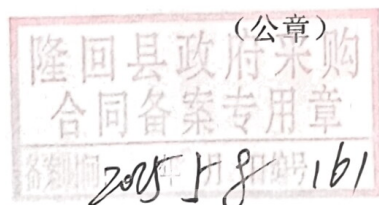 (公章)
隆回县政府采购
合同备案专用章
备案时间 2025年5月8日 编号 161